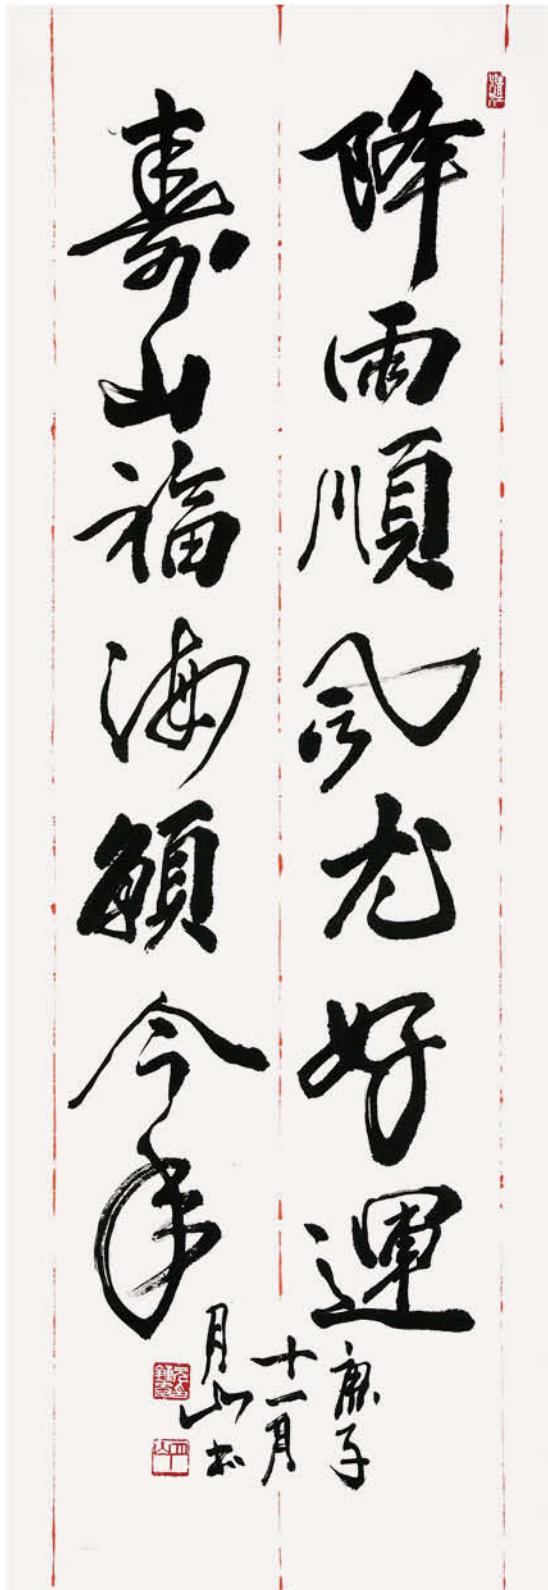 降雨順风尤好運
壽山福海願今年
庚子
十一月
月山书